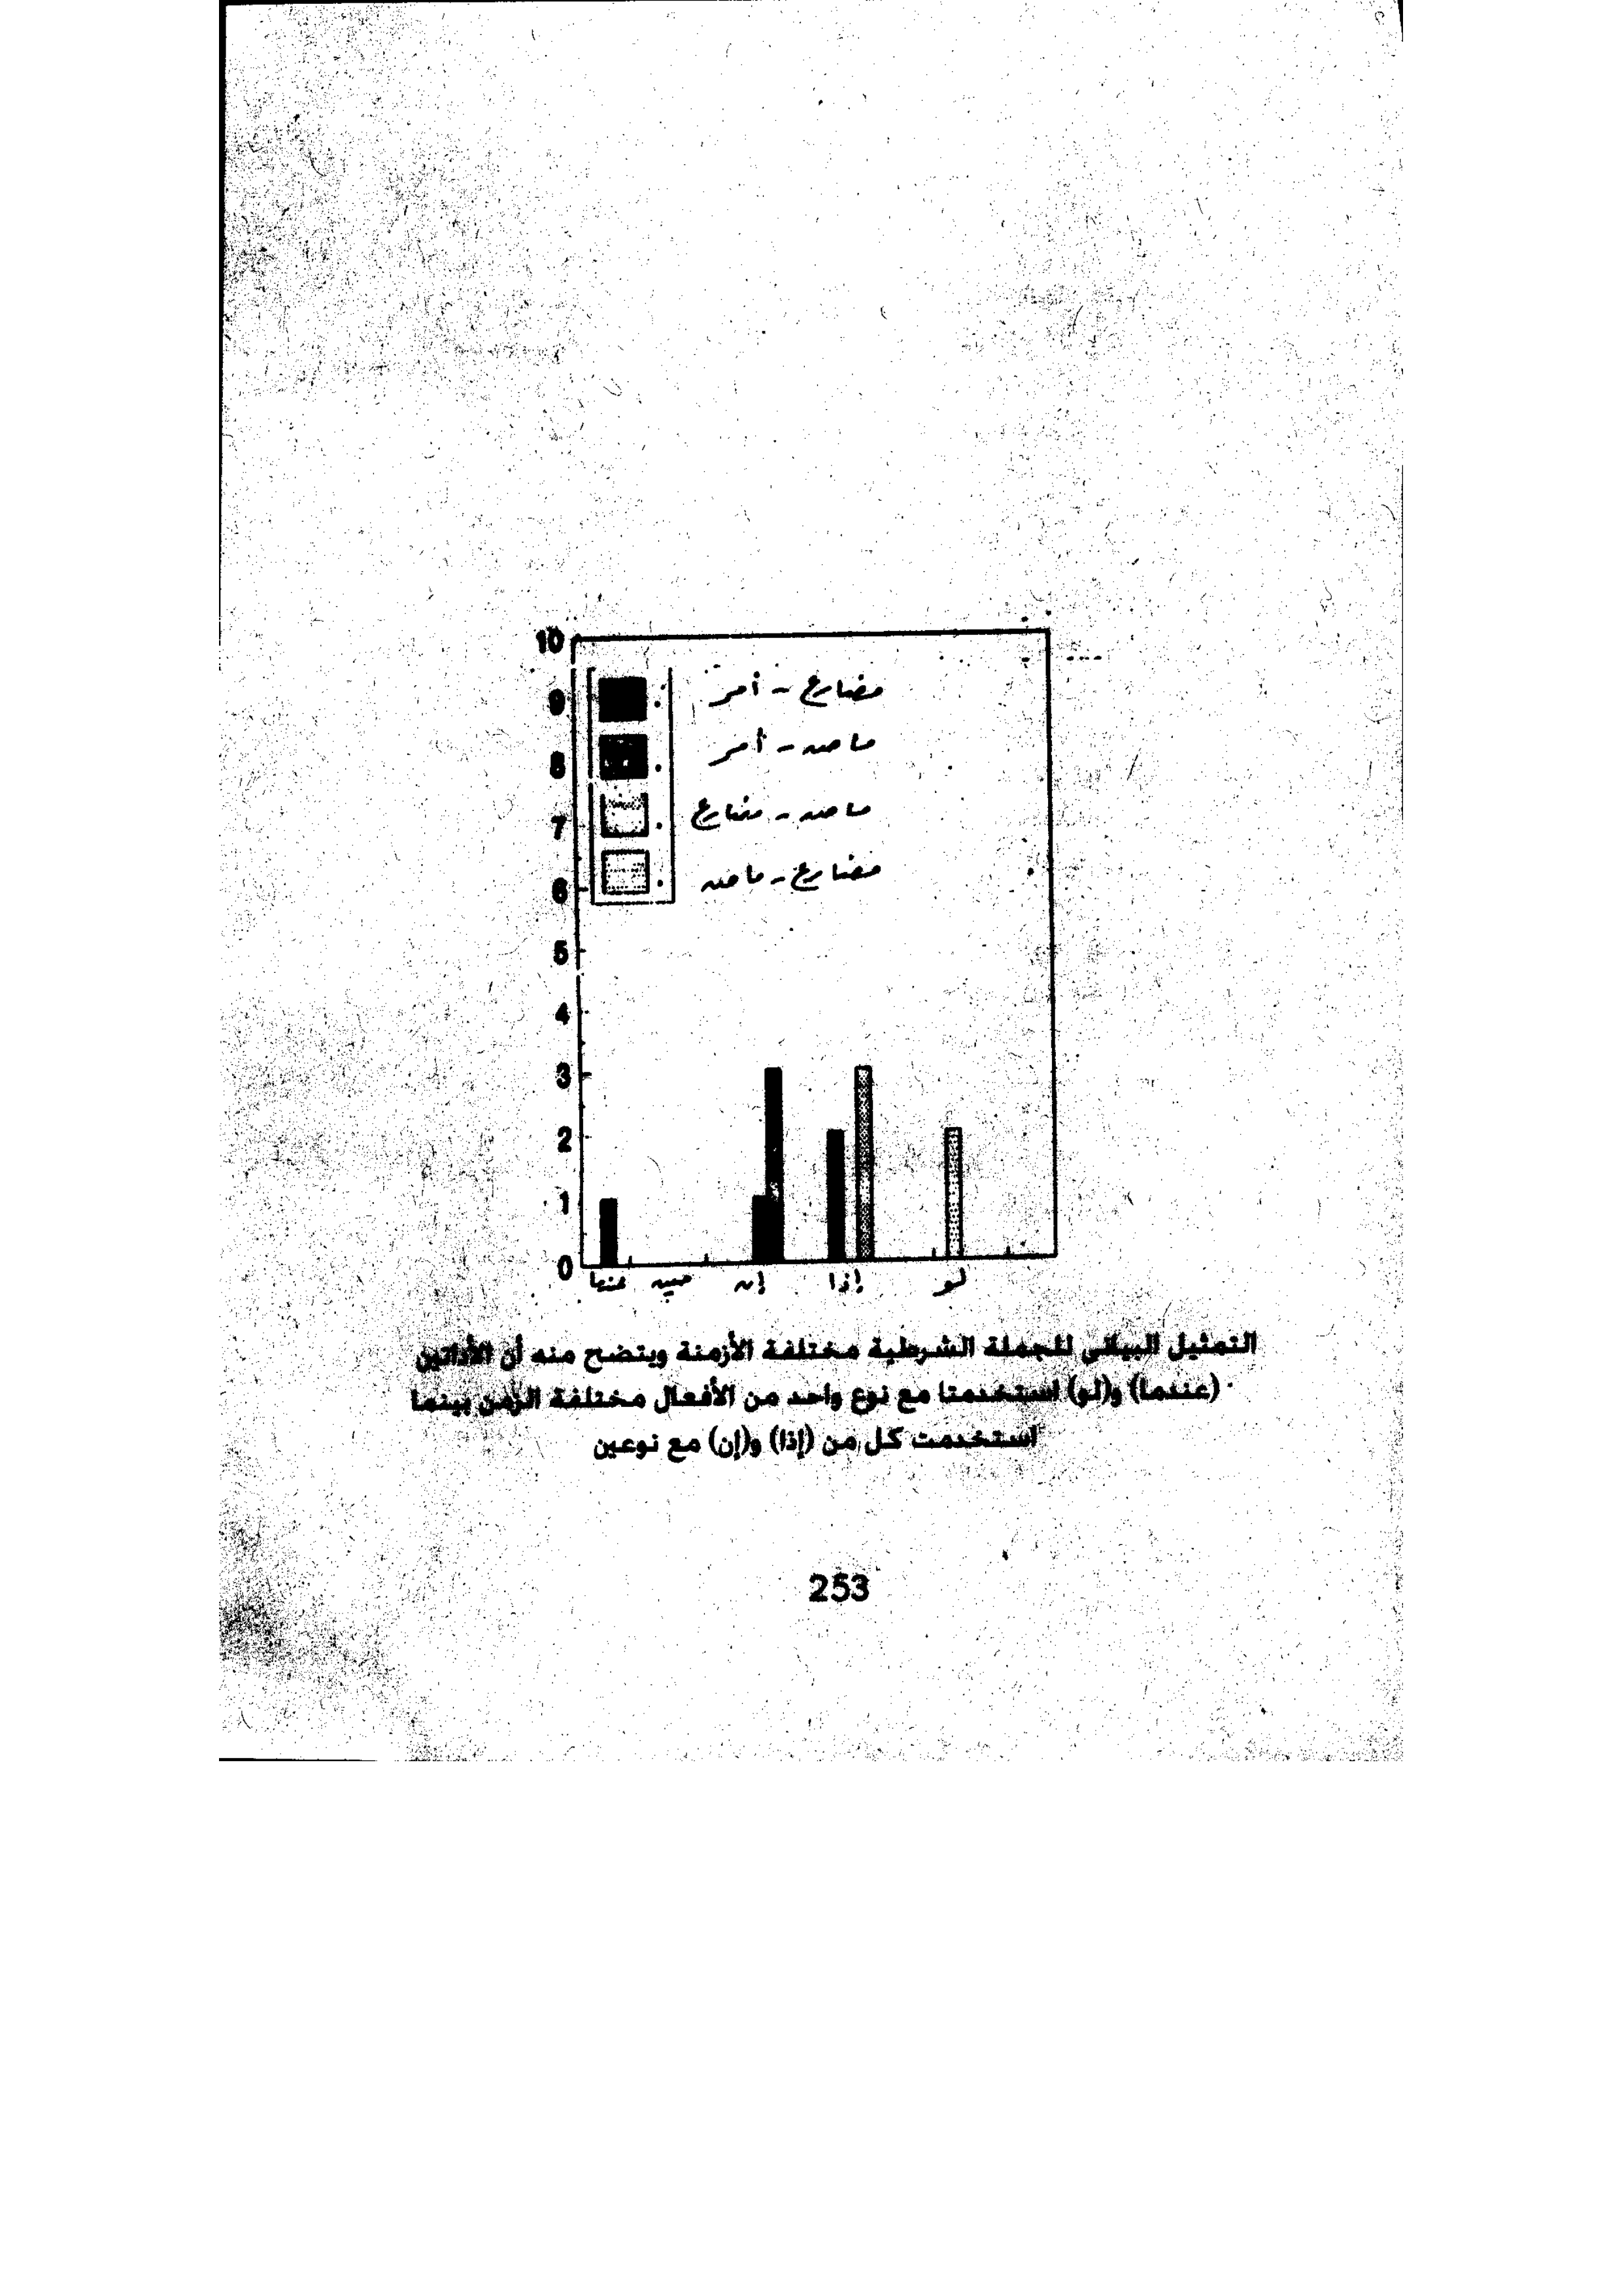 10
مضارع - أمر
9
ماضى - أمر
8
ماضى - مضارع
7
مضارع - ماضى
6
5
4
3
2
1
0
عندما حين إن إذا لو
التمثيل البيانى للجملة الشرطية مختلفة الأزمنة ويتضح منه أن الأداتين
(عندما) و(لو) استخدمتا مع نوع واحد من الأفعال مختلفة الزمن بينما
استخدمت كل من (إذا) و(إن) مع نوعين
253